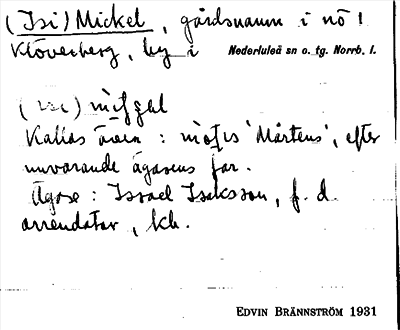 (Isi) Mickel, gårdsnamn i nö 1
Klöverberg, by i Nederluleå sn o. tg. Norrb. l.
Kallas även : 'Mårtens', efter
nuvarande ägarens far.
Ägare : Israel Isaksson, f. d.
arrendator, kh.
EDVIN BRÄNNSTRÖM 1931